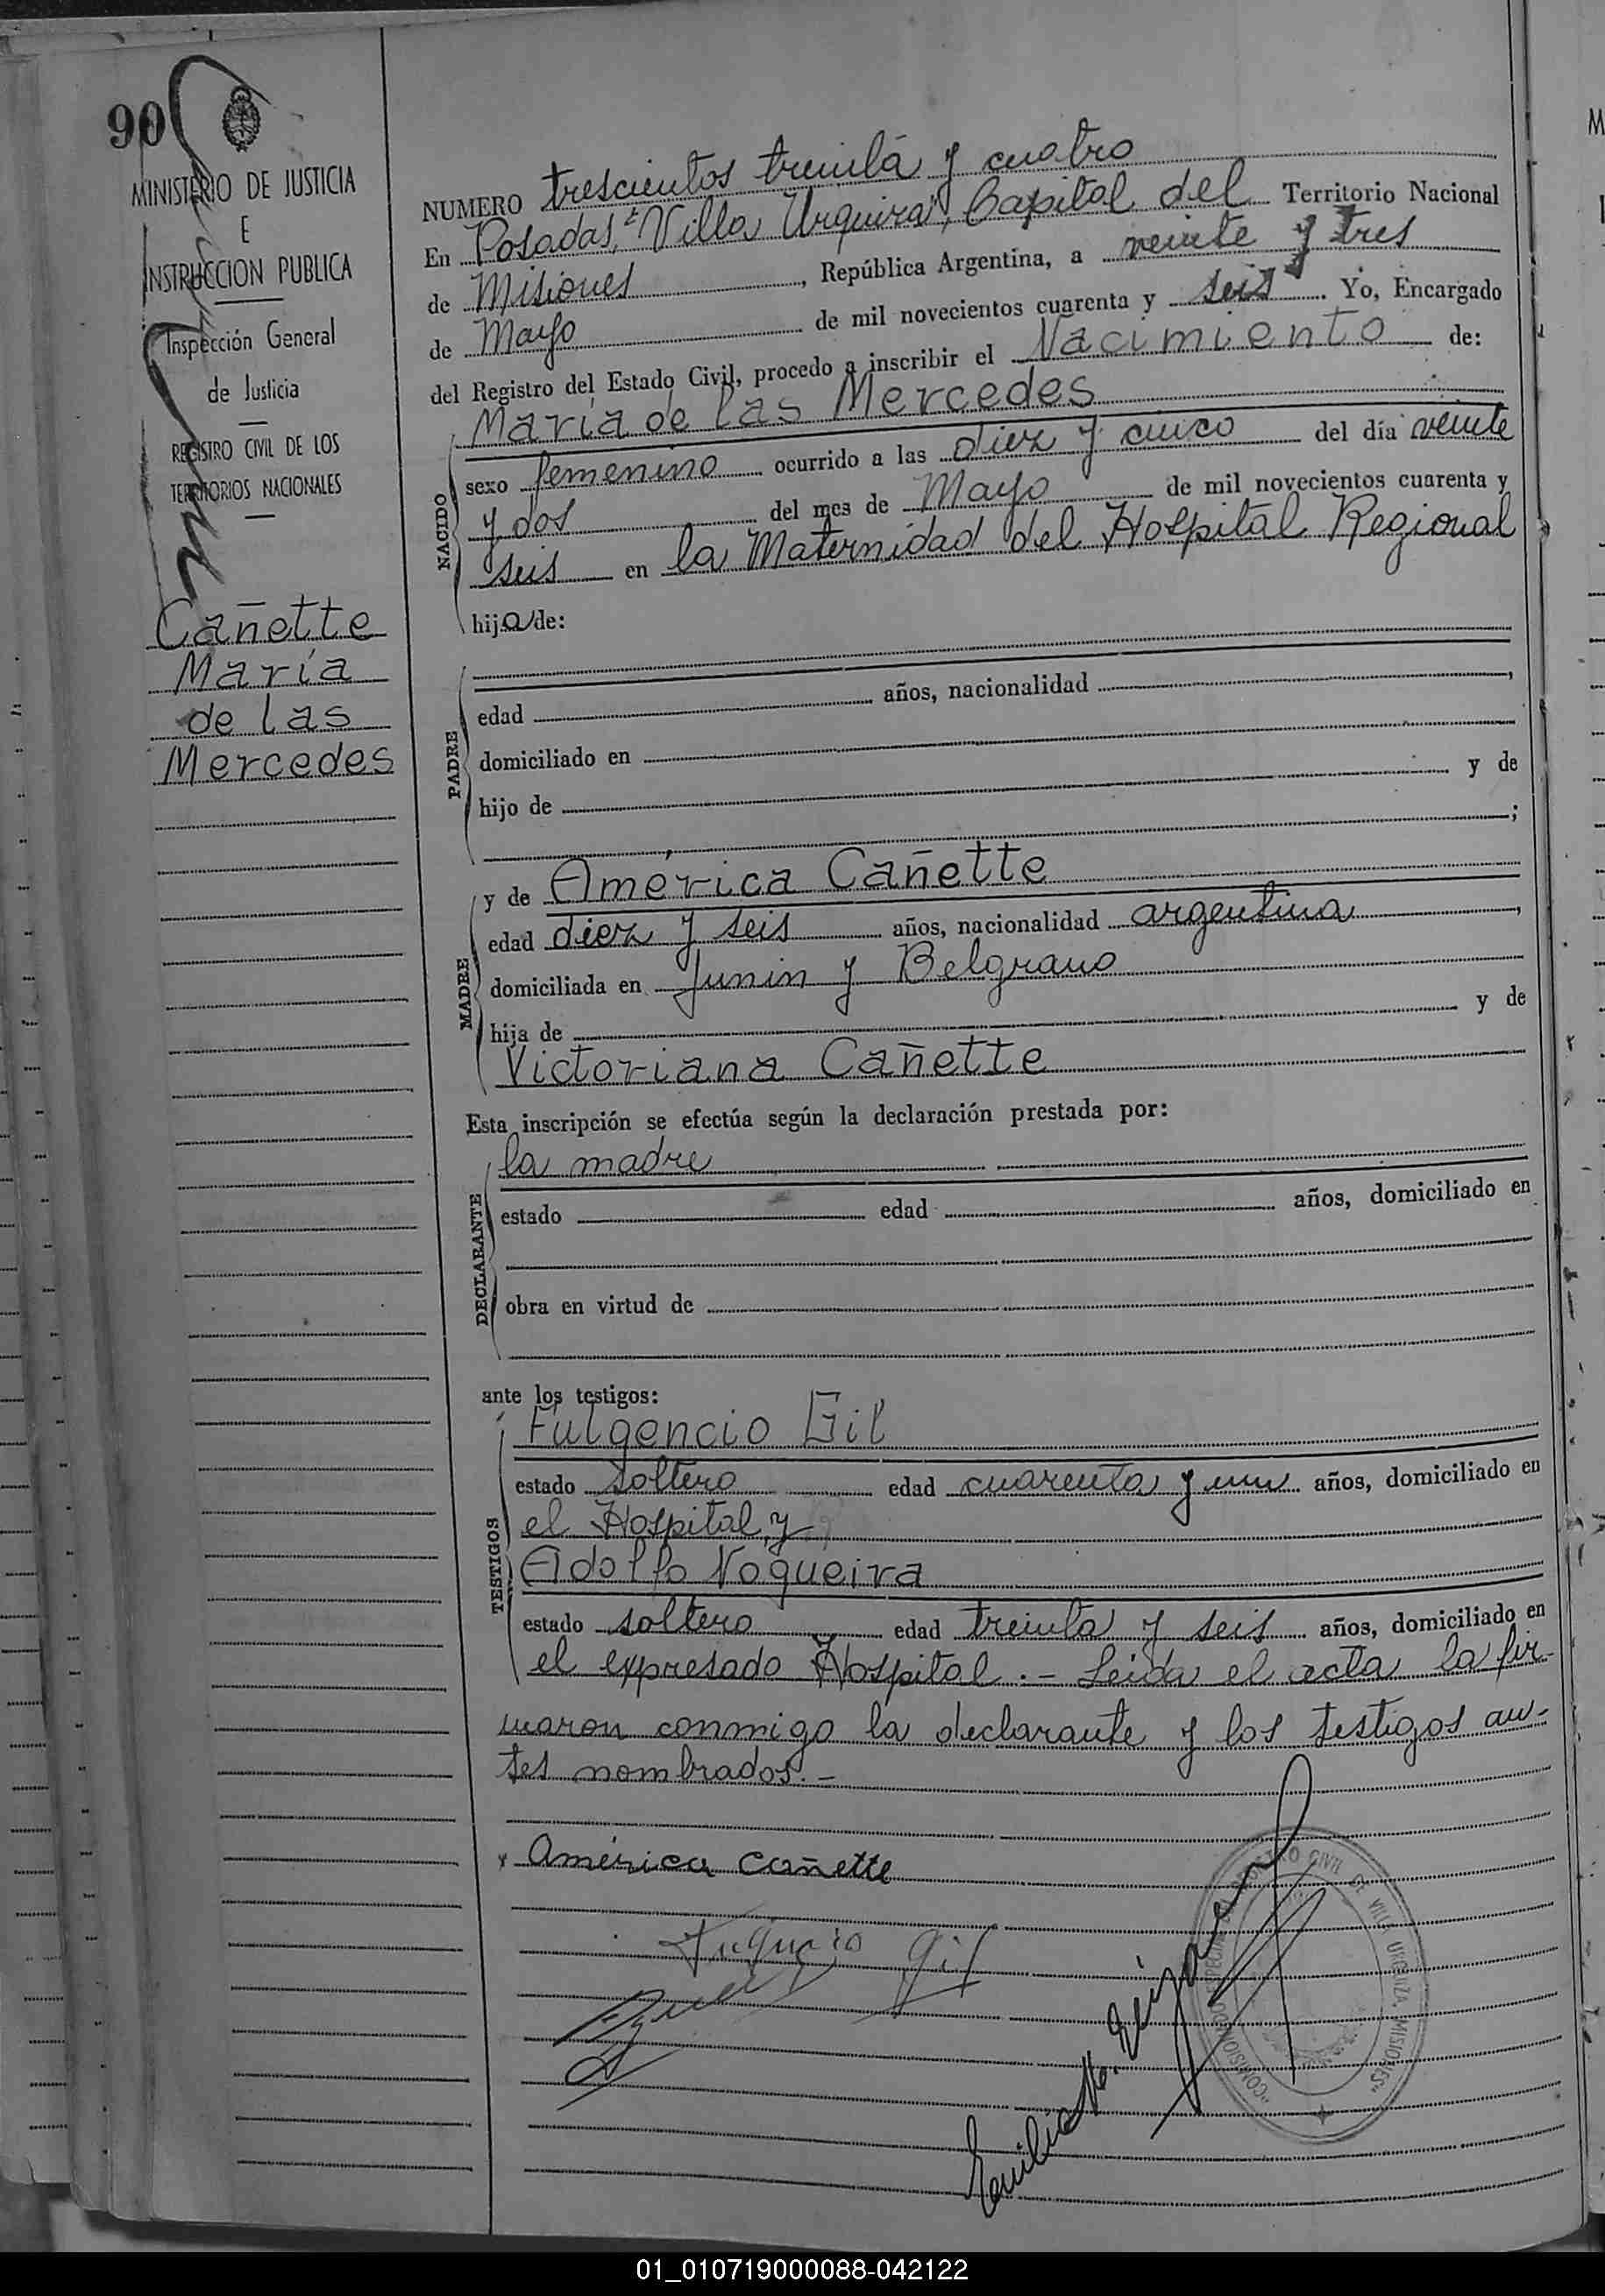 90
MINISTERIO DE JUSTICIA
E
INSTRUCCION PUBLICA
Inspección General
de Justicia
REGISTRO CIVIL DE LOS
TERRITORIOS NACIONALES
Cañette
María
de las
Mercedes
NUMERO trescientos treinta y cuatro
En Posadas, "Villa Urquiza", Capital del Territorio Nacional
de Misiones, República Argentina, a veinte y tres
de Mayo de mil novecientos cuarenta y seis. Yo, Encargado
del Registro del Estado Civil, procedo a inscribir el Nacimiento de:
NACIDO
María de las Mercedes
sexo femenino ocurrido a las diez y cinco del día veinte
y dos del mes de Mayo de mil novecientos cuarenta y
seis en la Maternidad del Hospital Regional
hija de:
PADRE
edad años, nacionalidad ,
domiciliado en
hijo de y de
;
MADRE
y de América Cañette
edad diez y seis años, nacionalidad argentina,
domiciliada en Junin y Belgrano
hija de y de
Victoriana Cañette
Esta inscripción se efectúa según la declaración prestada por:
DECLARANTE
la madre
estado edad años, domiciliado en
obra en virtud de
ante los testigos:
TESTIGOS
Fulgencio Gil
estado soltero edad cuarenta y un años, domiciliado en
el Hospital, y
Adolfo Nogueira
estado soltero edad treinta y seis años, domiciliado en
el expresado Hospital.- Leida el acta la fir-
maron conmigo la declarante y los testigos an-
tes nombrados.-
x América Cañette
Gil
Emilia
REGISTRO CIVIL DE VILLA URQUIZA, MISIONES"
01_010719000088-042122